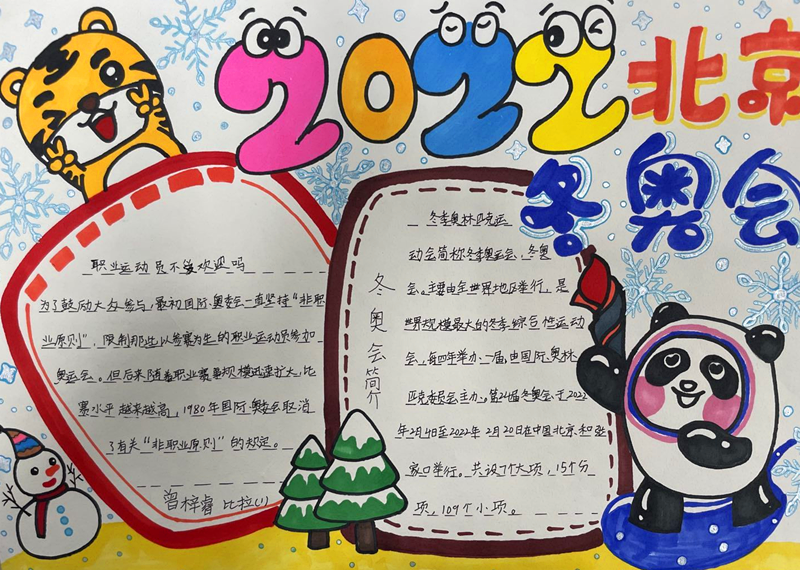 2022北京
冬奥会
职业运动员不受欢迎吗
为了鼓励大众参与,最初国际奥委会一直坚持“非职
业原则”,限制那些以参赛为生的职业运动员参加
奥运会。但后来随着职业赛事规模迅速扩大,比
赛水平越来越高,1980年国际奥委会取消
了有关“非职业原则”的规定。
曾梓睿 比拉(1)
冬奥会简介
冬季奥林匹克运
动会简称冬季奥运会、冬奥
会。主要由全世界地区举行,是
世界规模最大的冬季综合性运动
会,每四年举办一届,由国际奥林
匹克委员会主办。第24届冬奥会于2022
年2月4日至2022年2月20日在中国北京和张
家口举行。共设7个大项,15个分
项,109个小项。